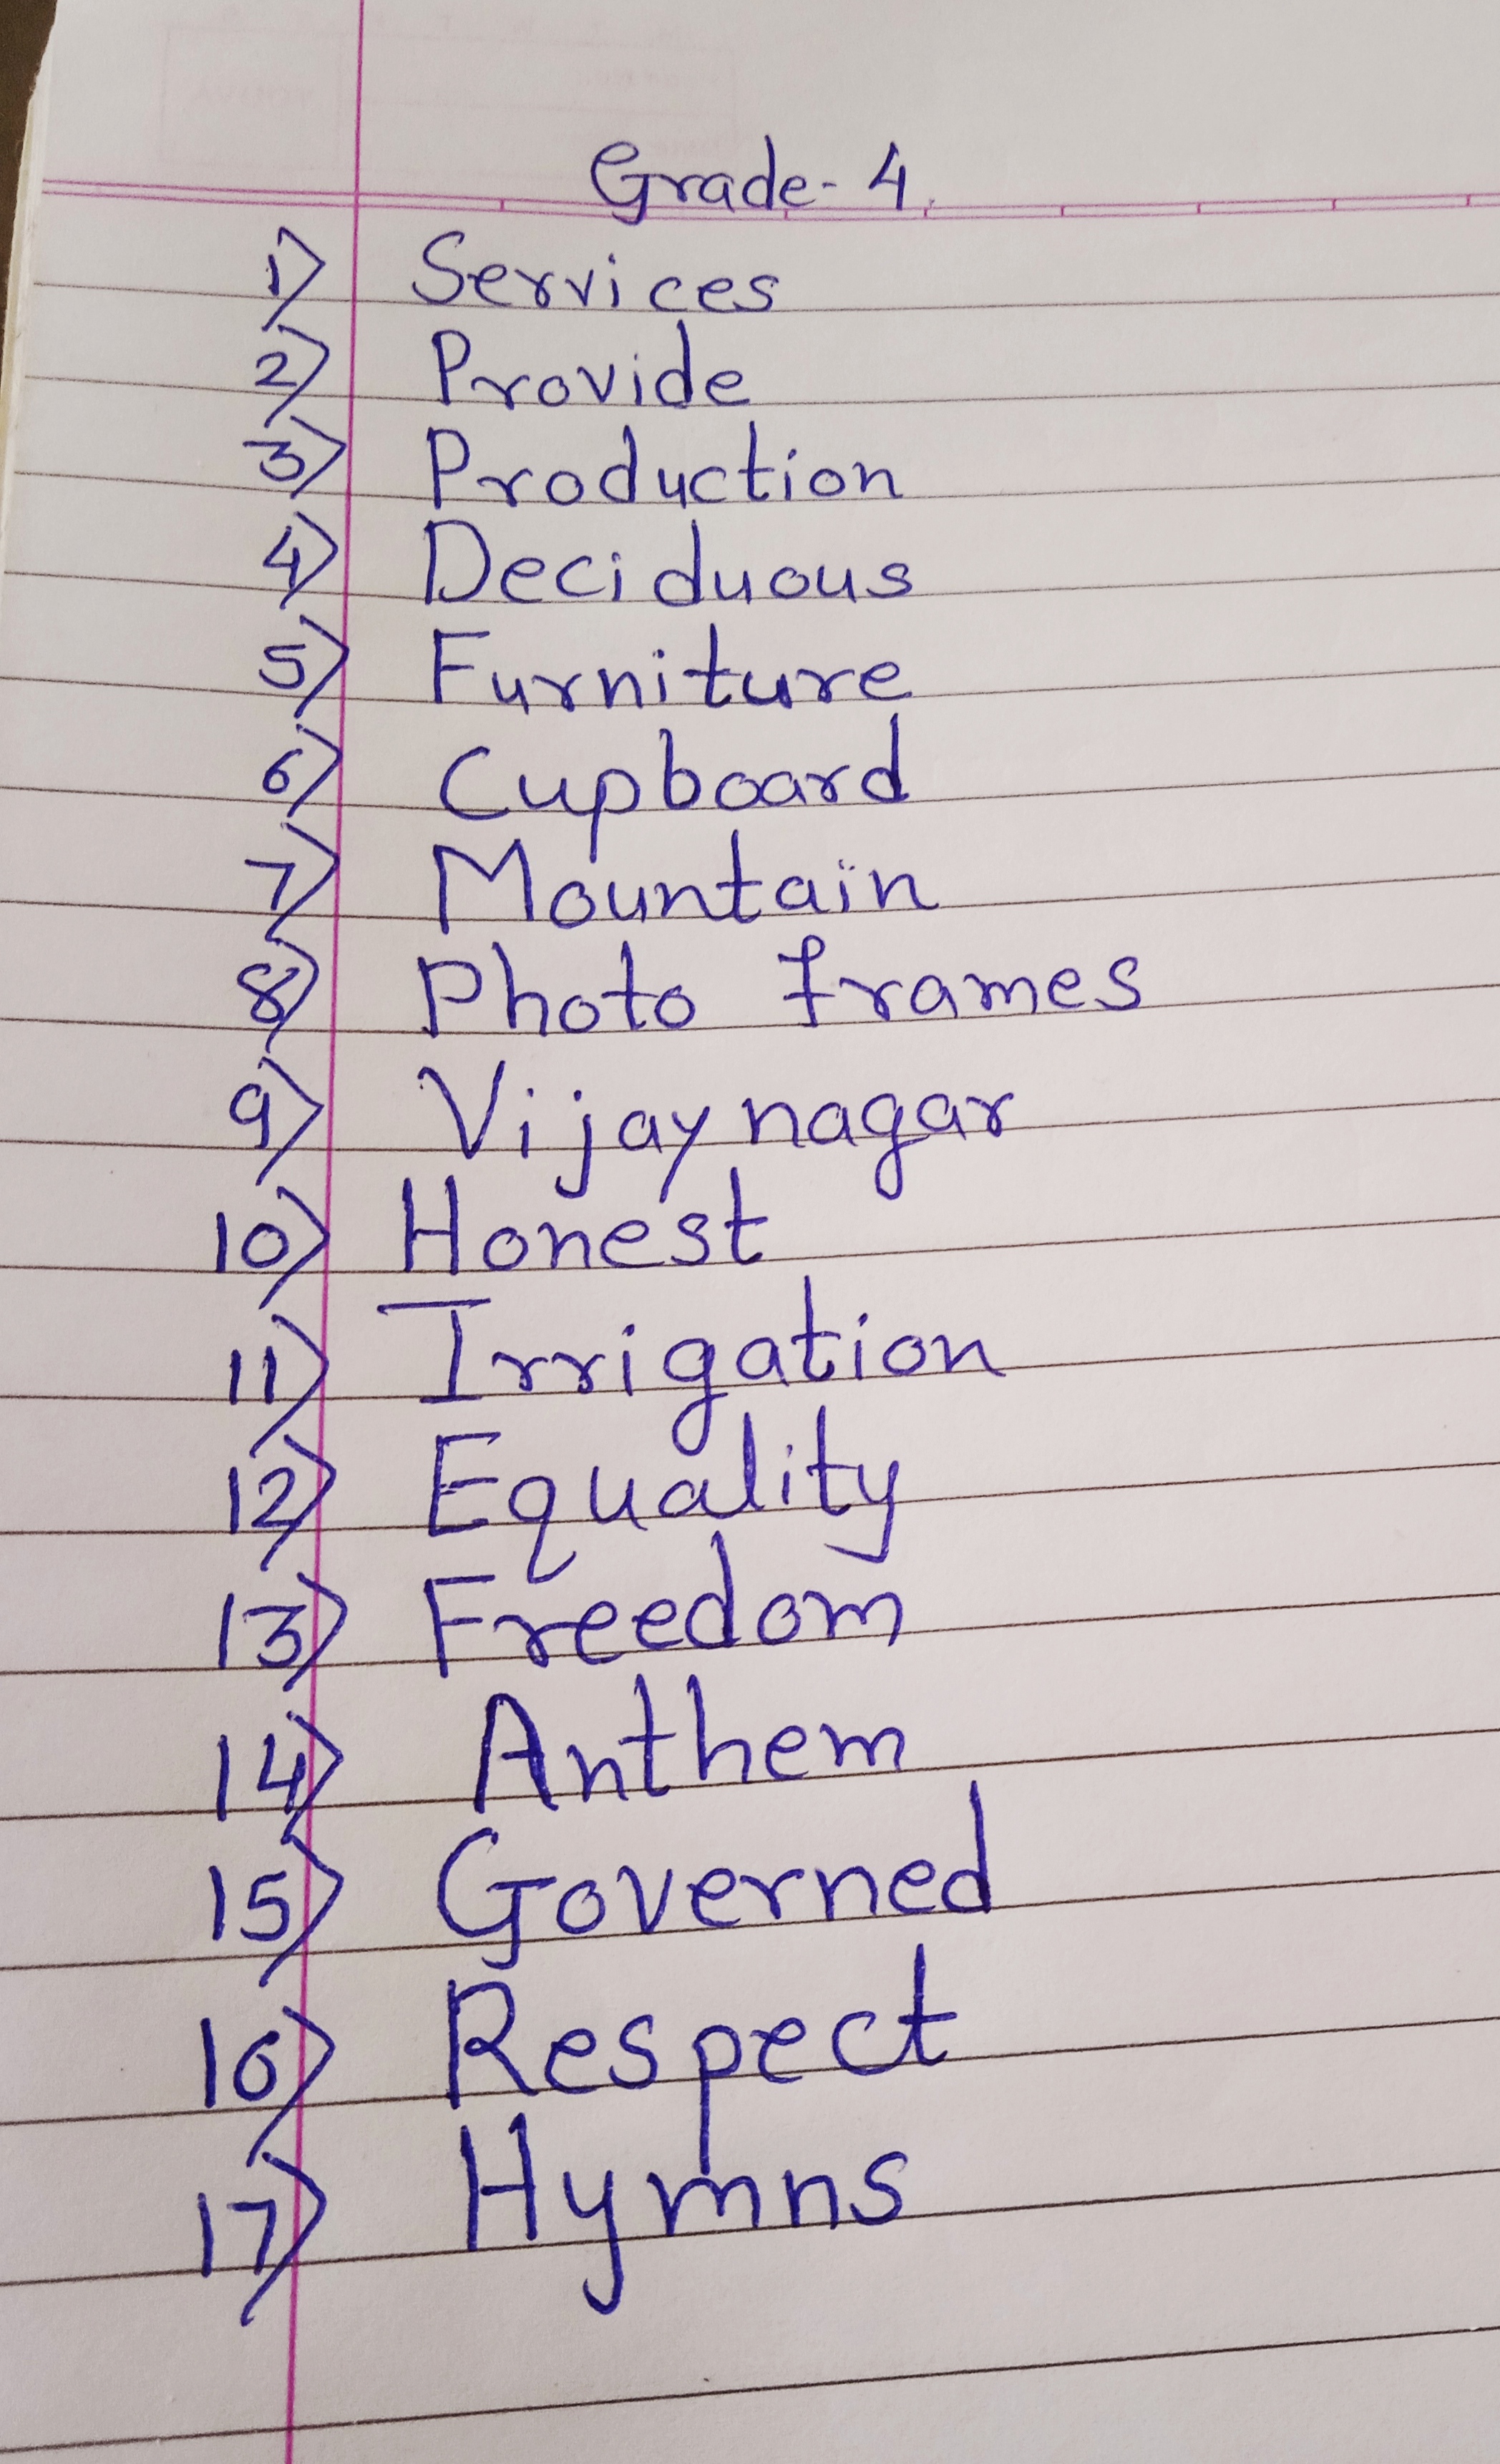 Grade- 4.
1) Services
2) Provide
3) Production
4) Deciduous
5) Furniture
6) Cupboard
7) Mountain
8) Photo frames
9) Vijaynagar
10) Honest
11) Irrigation
12) Equality
13) Freedom
14) Anthem
15) Governed
16) Respect
17) Hymns